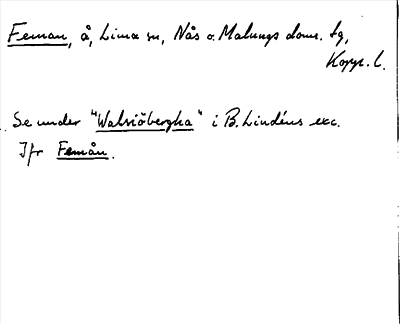 Feman, å, Lima sn, Nås o. Malungs doms. tg,
Kopp. l.
Se under "Walsiöbergha" i B. Lindéns exc.
Jfr Femån.